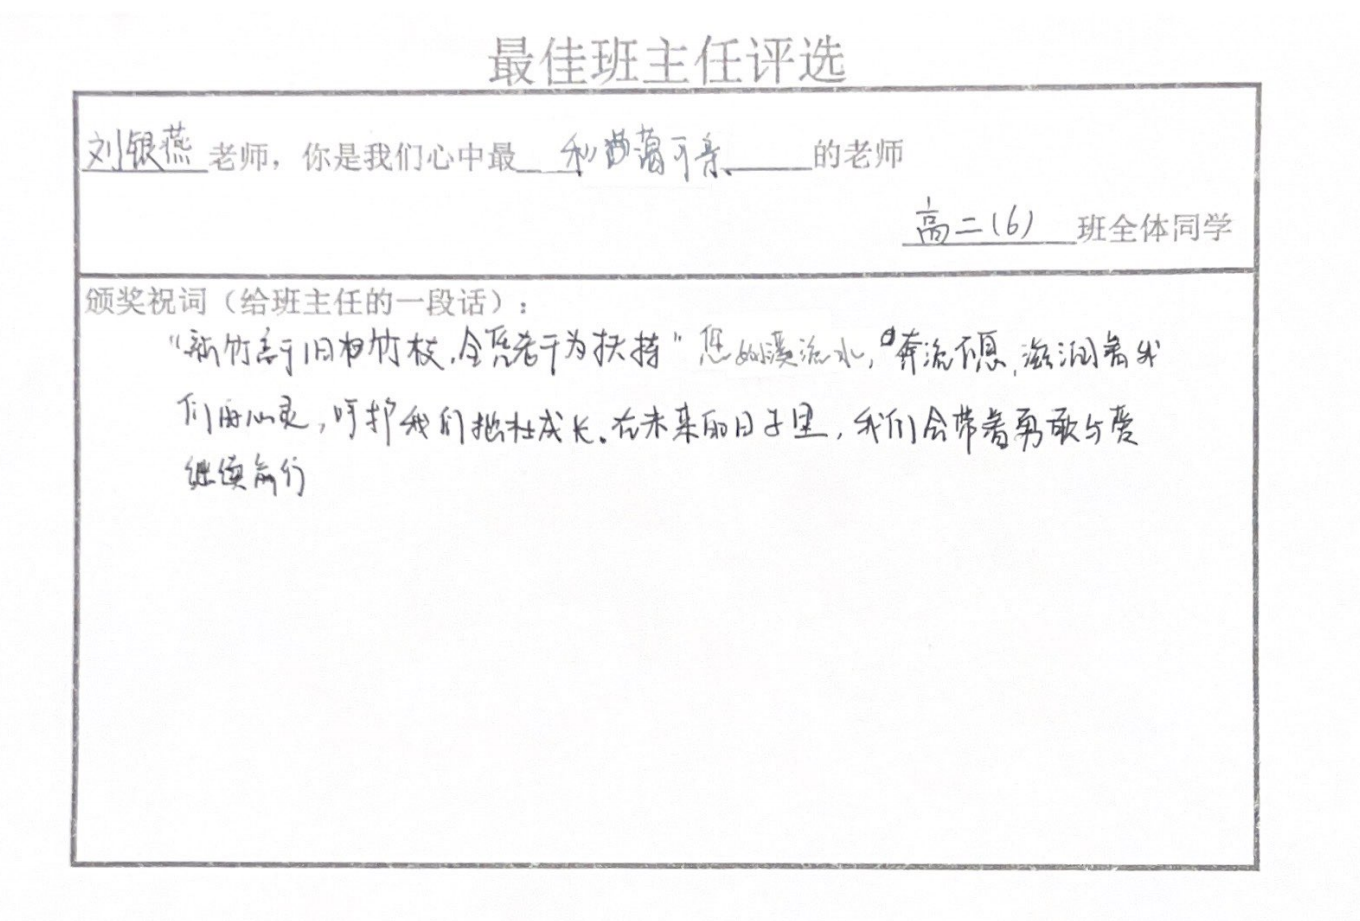 最佳班主任评选
刘银燕老师，你是我们心中最和蔼可亲的老师
高二(6)班全体同学
颁奖祝词（给班主任的一段话）：
“新竹高于旧竹枝，全凭老干为扶持”您如溪流水，奔流不息，滋润着我
们的心灵，呵护我们茁壮成长。在未来的日子里，我们会带着勇敢与爱
继续前行